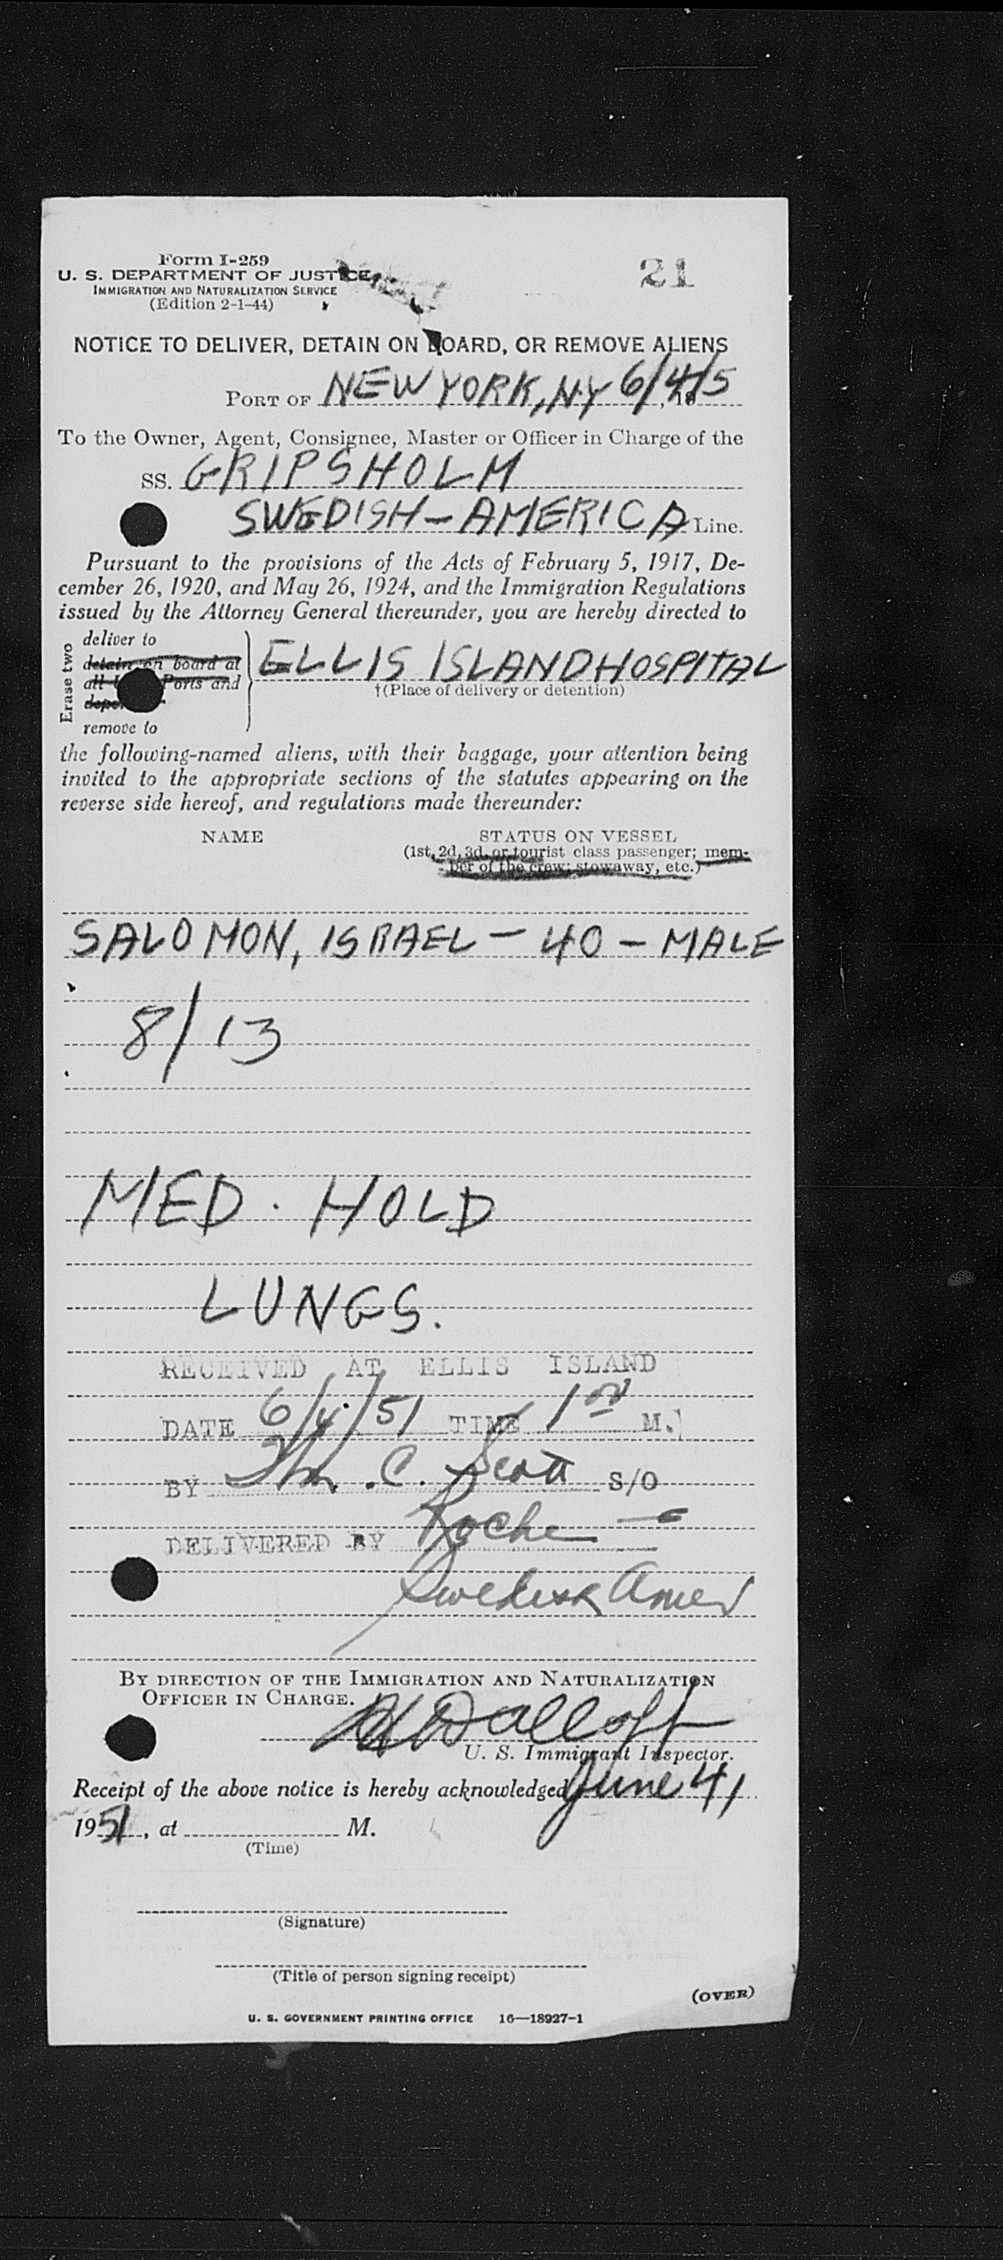 Form I-259
21
U. S. DEPARTMENT OF JUSTICE
IMMIGRATION AND NATURALIZATION SERVICE
(Edition 2-1-44)
NOTICE TO DELIVER, DETAIN ON BOARD, OR REMOVE ALIENS
PORT OF NEW YORK, NY 6/4/5
To the Owner, Agent, Consignee, Master or Officer in Charge of the
SS. GRIPSHOLM
SWEDISH-AMERICA Line.
Pursuant to the provisions of the Acts of February 5, 1917, De-
cember 26, 1920, and May 26, 1924, and the Immigration Regulations
issued by the Attorney General thereunder, you are hereby directed to
Erase two
deliver to
detain on board at
all Ports and
remove to
ELLIS ISLAND HOSPITAL
†(Place of delivery or detention)
the following-named aliens, with their baggage, your attention being
invited to the appropriate sections of the statutes appearing on the
reverse side hereof, and regulations made thereunder:
NAME STATUS ON VESSEL
(1st, 2d, 3d, or tourist class passenger; mem-
ber of the crew; stowaway, etc.)
SALOMON, ISRAEL - 40 - MALE
8/13
MED. HOLD
LUNGS.
RECEIVED AT ELLIS ISLAND
DATE 6/4/51 TIME 1 00 M.
BY Wm. C. Scott S/O
DELIVERED BY Roche
Swedish Amer
BY DIRECTION OF THE IMMIGRATION AND NATURALIZATION
OFFICER IN CHARGE.
U. S. Immigrant Inspector.
Receipt of the above notice is hereby acknowledged June 4,
1951, at M.
(Time)
(Signature)
(Title of person signing receipt)
(OVER)
U. S. GOVERNMENT PRINTING OFFICE 16—18927-1